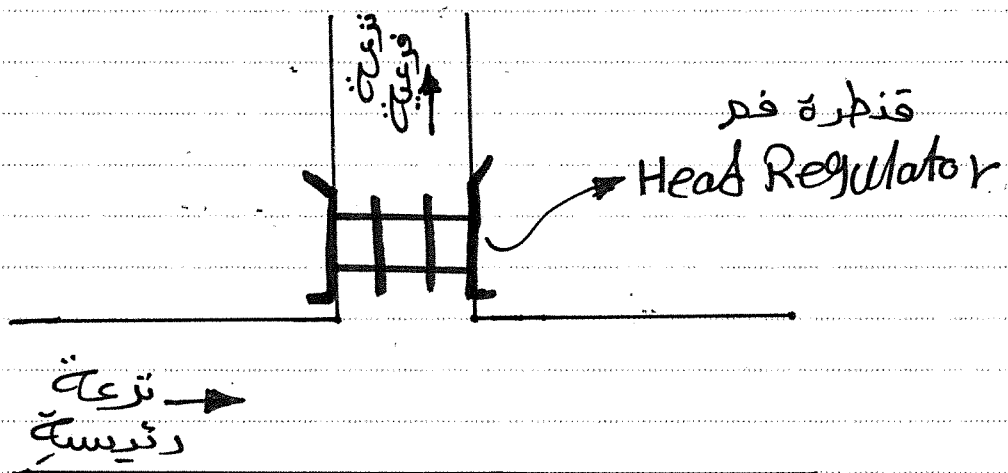 ترعة
فرعية
قنطرة فم
Head Regulator
ترعة
رئيسية